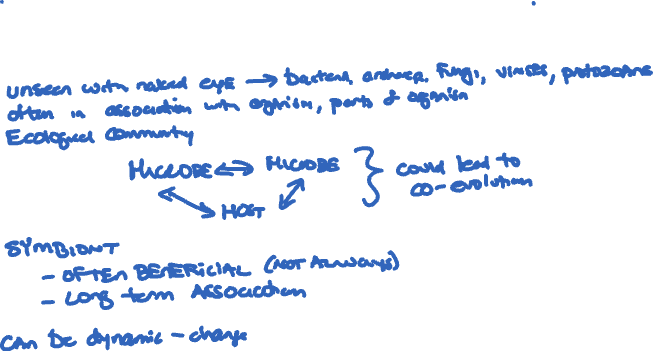 unseen with naked eye → bacteria, archaea, fungi, viruses, protozoans
often in association with organism, parts of organism
Ecological community
MICROBE ↔ MICROBE } could lead to
co-evolution
HOST
SYMBIONT
- OFTEN BENEFICIAL (NOT ALWAYS)
- Long term ASSOCIATION
CAN be dynamic - change